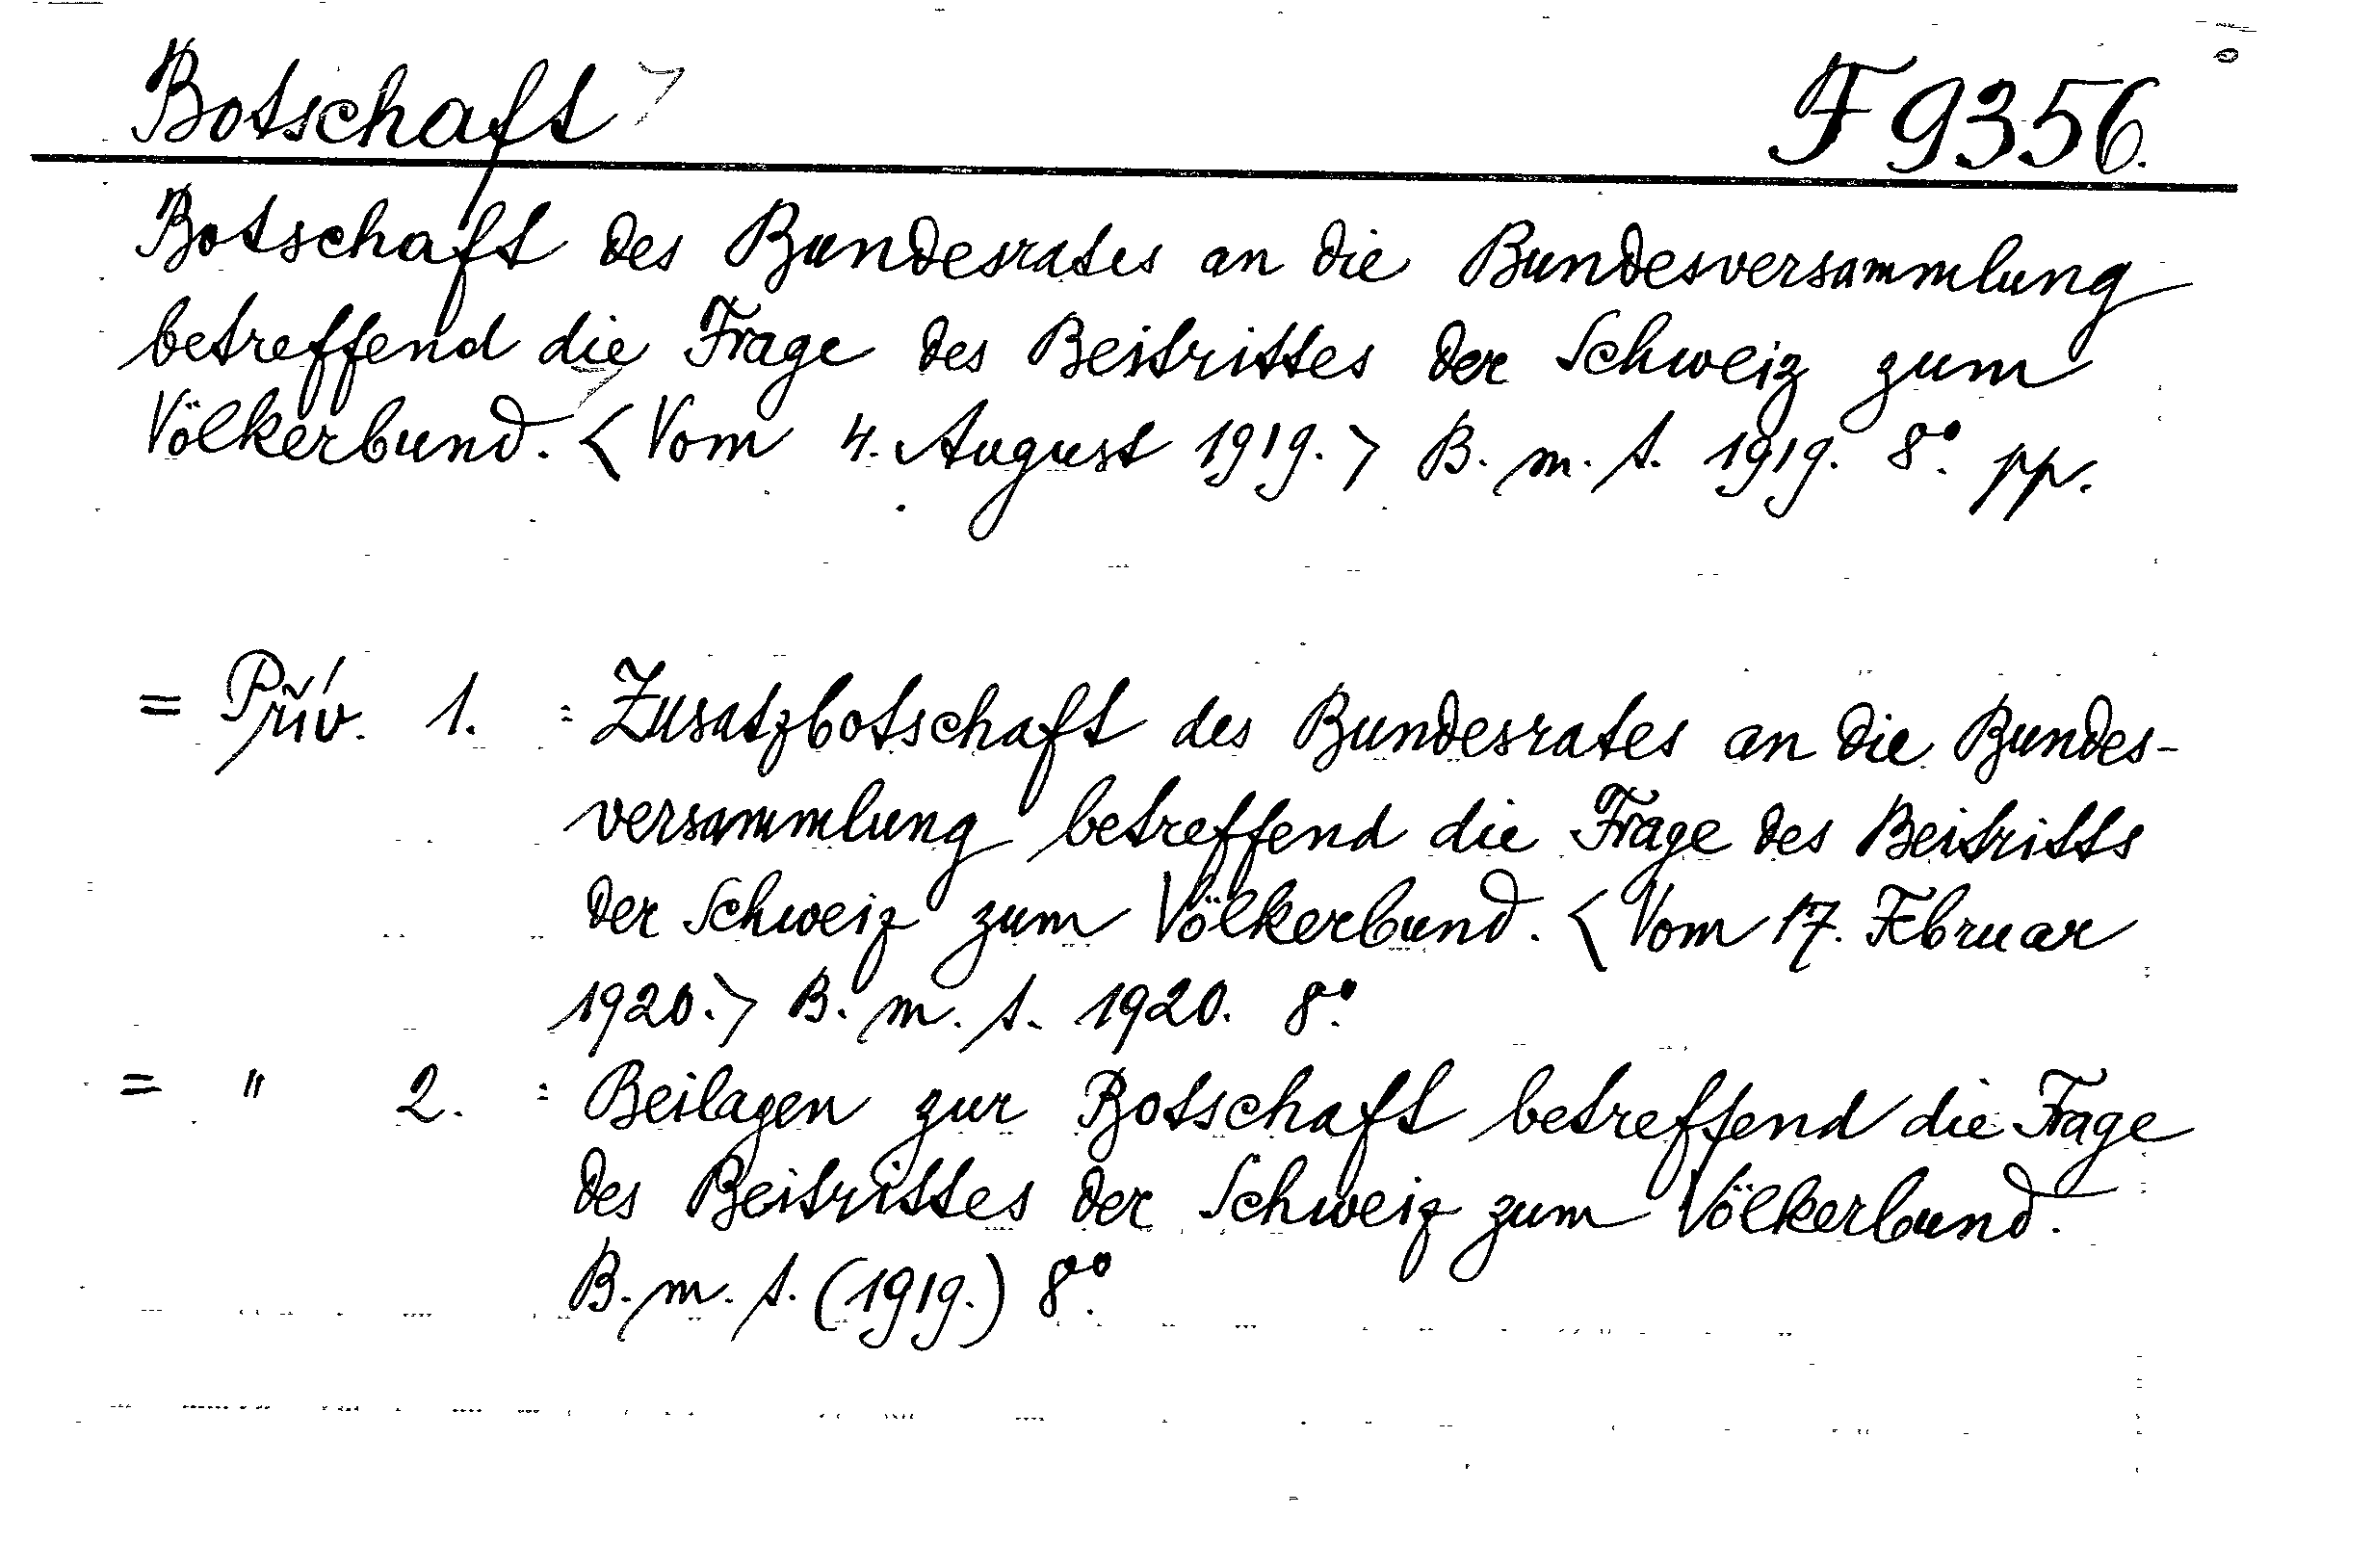 Botschaft F 9356.
Botschaft des Bundesrates an die Bundesversammlung
betreffend die Frage des Beitrittes der Schweiz zum
Völkerbund. < Vom 4. August 1919. > B. m. t. 1919. 8° pp.
= Přív. 1. : Zusatzbotschaft des Bundesrates an die Bundes-
versammlung betreffend die Frage des Beitritts
der Schweiz zum Völkerbund. < Vom 17. Februar
1920. > B. m. t. 1920. 8°
= " 2. : Beilagen zur Botschaft betreffend die Frage
des Beitrittes der Schweiz zum Völkerbund.
B. m. t. (1919.) 8°